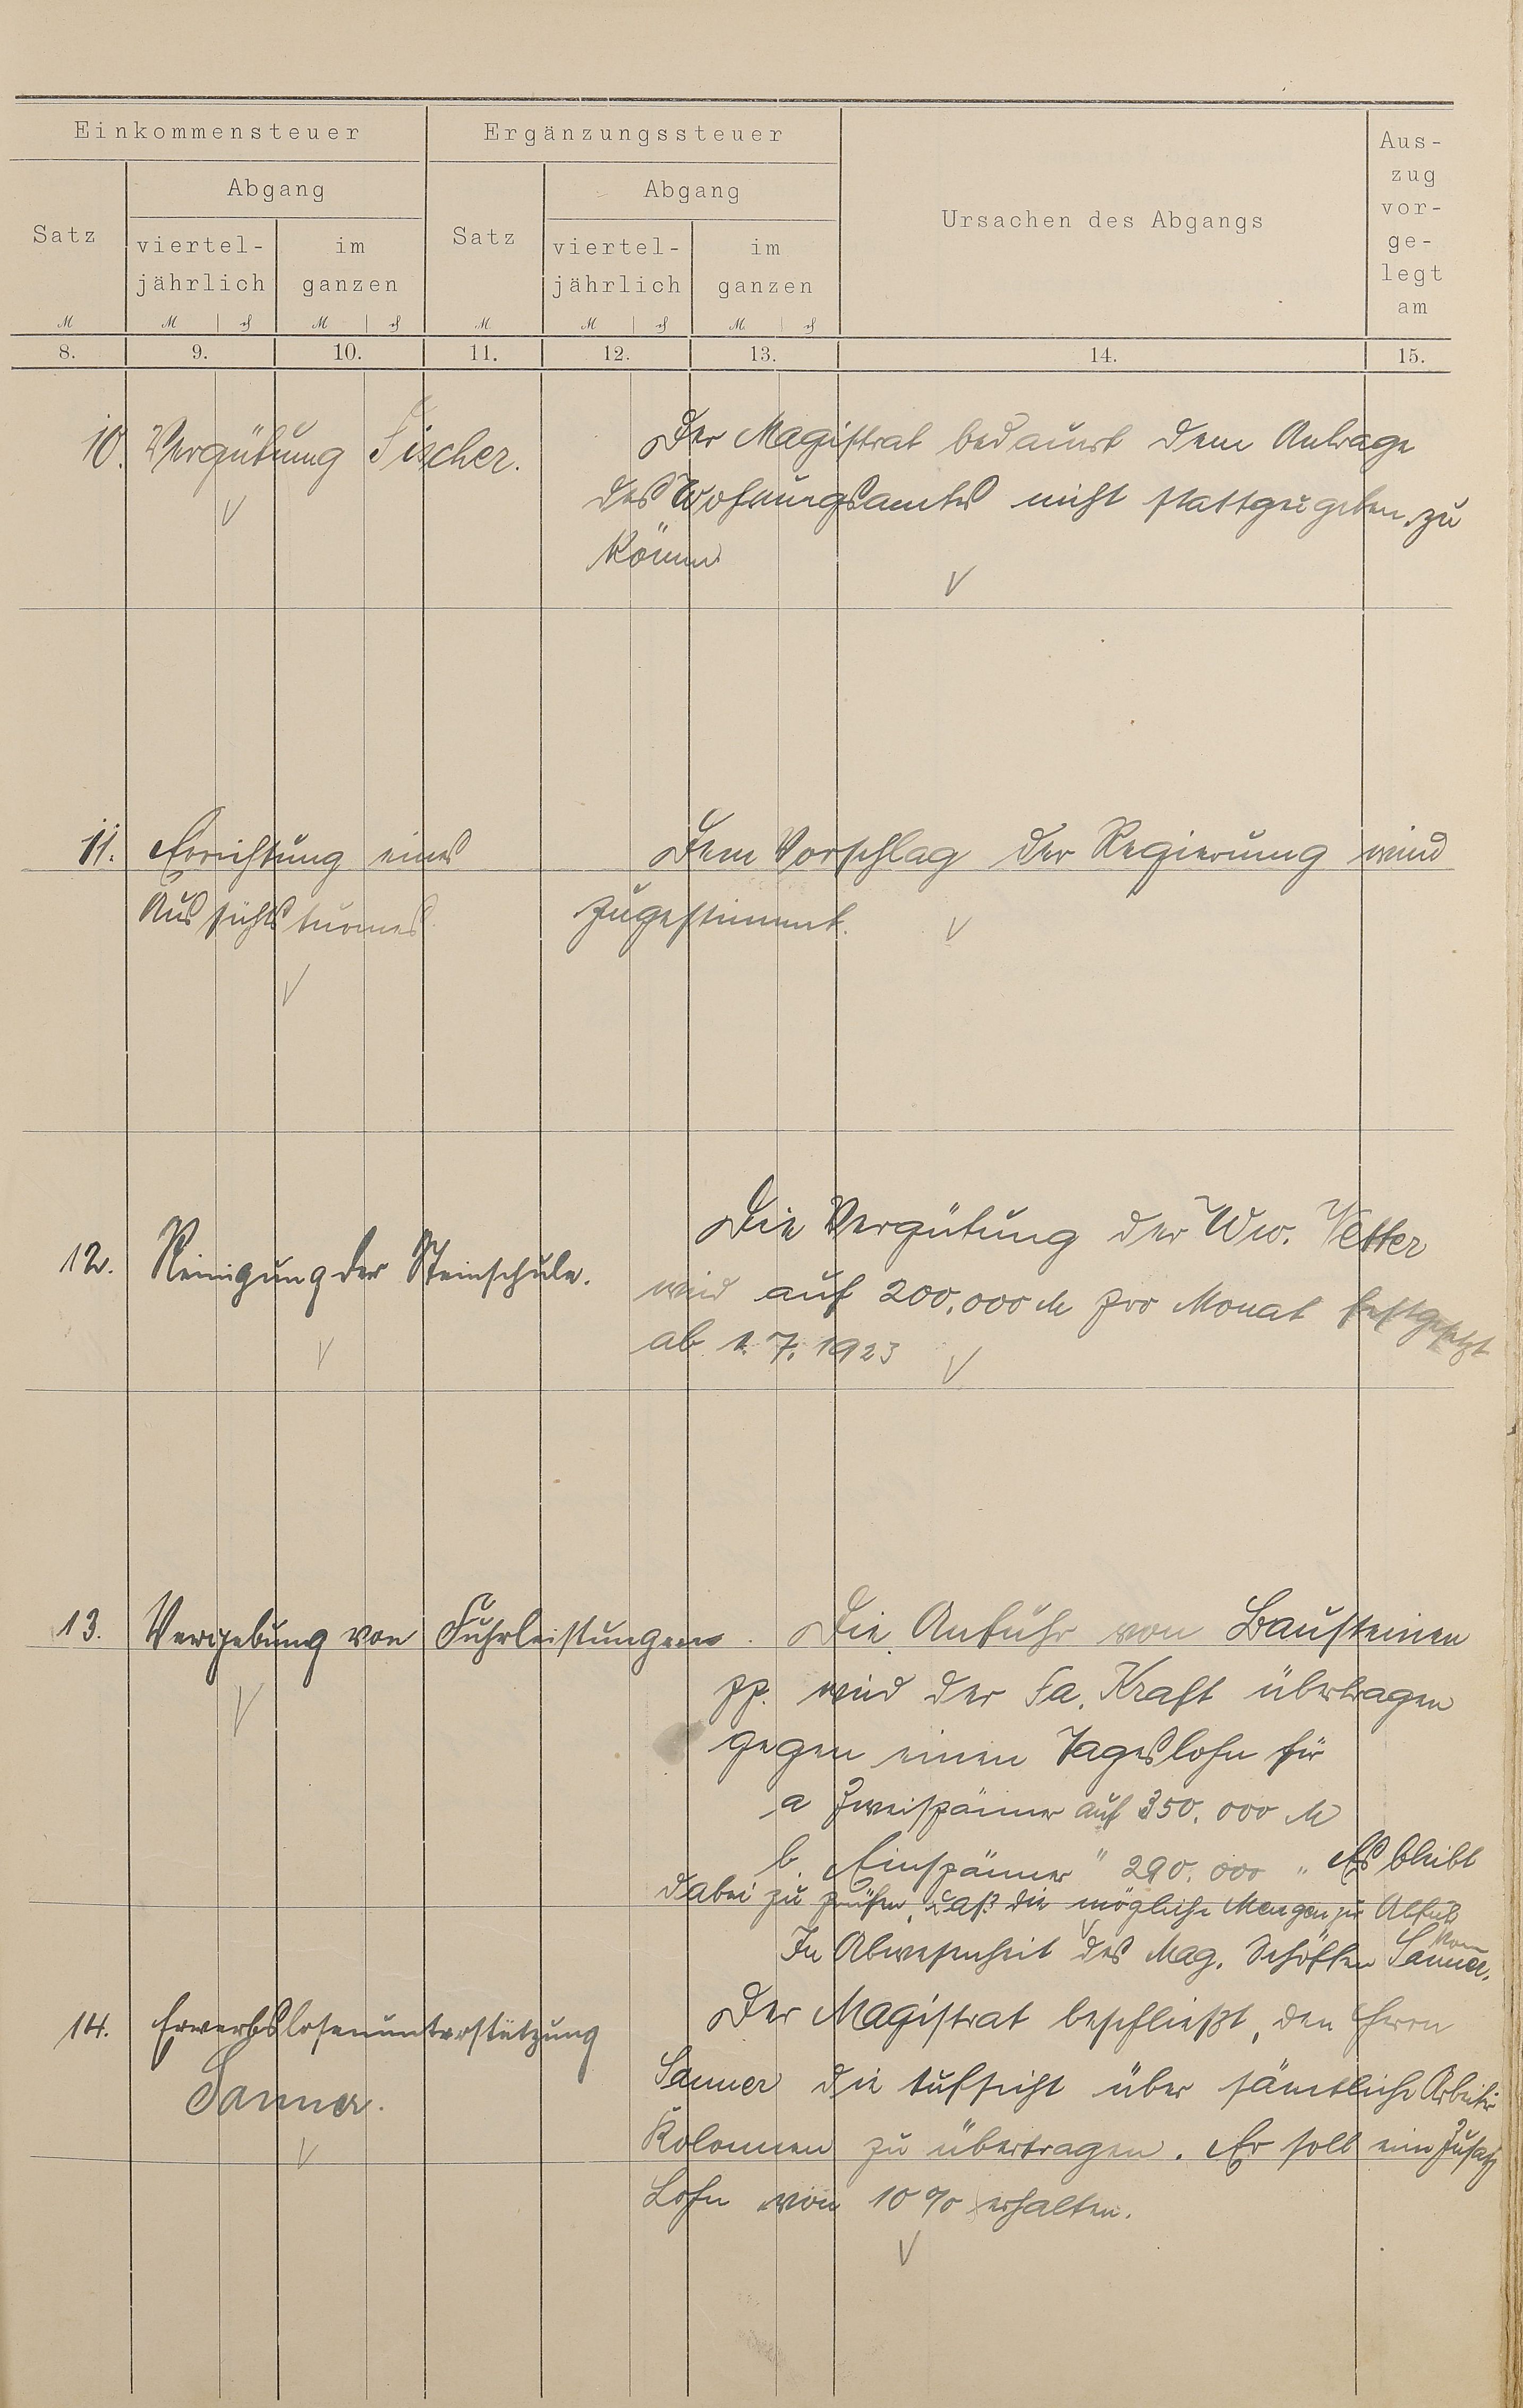 Einkommensteuer Ergänzungssteuer Ursachen des Abgangs Aus-
zug
vor-
ge-
legt
am
Satz Abgang Satz Abgang
viertel-
jährlich im
ganzen viertel-
jährlich im
ganzen
M M ₰ M ₰ M M ₰ M ₰
8. 9. 10. 11. 12. 13. 14. 15.
10. Vergütung Fischer.
Der Magistrat bedauert dem Antrage
des Wohnungsamtes nicht stattgegeben zu
können
11. Errichtung eines
Aussichtsturmes
Dem Vorschlag der Regierung wird
zugestimmt.
12. Reinigung der Steinschule.
Die Vergütung der Ww. Vetter
wird auf 200.000 M pro Monat festgesetzt
ab 1. 7. 1923
13. Vergebung von Fuhrleistungen.
Die Anfuhr von Bausteinen
pp. wird der Fa. Kraft übertragen
gegen einen Tageslohn für
a Zweispänner auf 350.000 M
b. Einspänner " 290.000 " Es bleibt
dabei zu prüfen, daß die mögliche Mengen zur
In Abwesenheit des Mag. Schöffen Sanner.
14. Erwerbslosenunterstützung
Sanner.
Der Magistrat beschließt, den Herrn
Sanner die Aufsicht über sämtliche Arbeiter
Kolonnen zu übertragen. Er soll ein Zusatz
Lohn von 10 % erhalten.